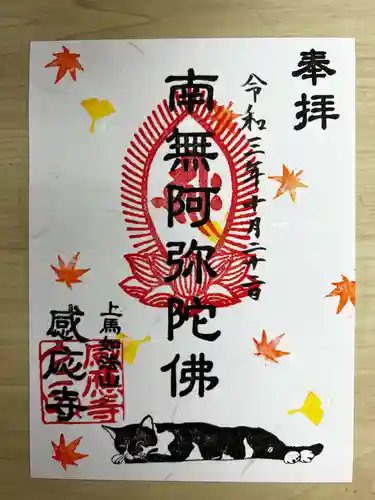 奉拝
令和三年十月二十二日
南無阿弥陀佛
上馬
感応寺
感應寺